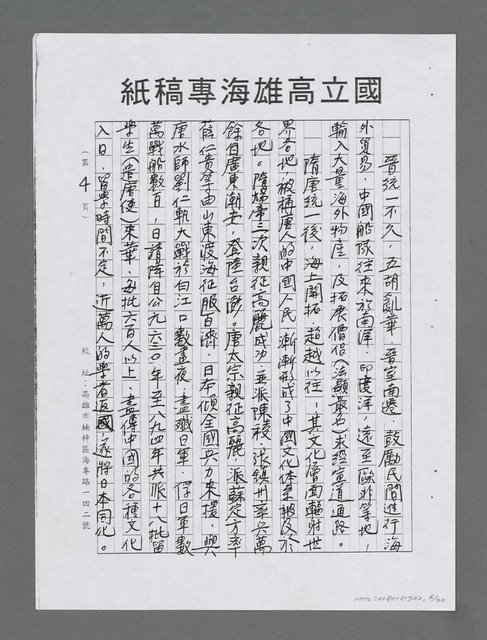 國立高雄海專稿紙
晉統一不久，五胡亂華，晉室南遷，鼓勵民間進行海
外貿易，中國船隊往來於南洋，印度洋，遠至歐非等地，
輸入大量海外物產，及拓展僧侶（法顯最名）求經宣道通路。
隋唐統一後，海上開拓，超越以往，其文化管道輻射世
界各地，被稱唐人的中國人民，漸漸形成了中國文化体系被及於
各地。隋煬帝三次親征高麗成功，並派陳稜、張鎮州率兵萬
餘自廣東潮安，登陸台灣。唐太宗親征高麗，派蘇定方率
薛仁貴等由山東渡海征服百濟，日本傾全國兵力來援，與
唐水師劉仁軌大戰於白江口數晝夜，盡殲日軍，俘日軍數
萬戰船數百，日請降自公元六三〇年至八九四年共派十八批留
學生（遣唐使）來華，每批六百人以上，盡傳中國的各種文化
入日，留學時間不定，近萬人的學者返國，遂將日本同化。
（第4頁）
校址：高雄市楠梓區海專路一四二號
NMTL20080181902, 5/30